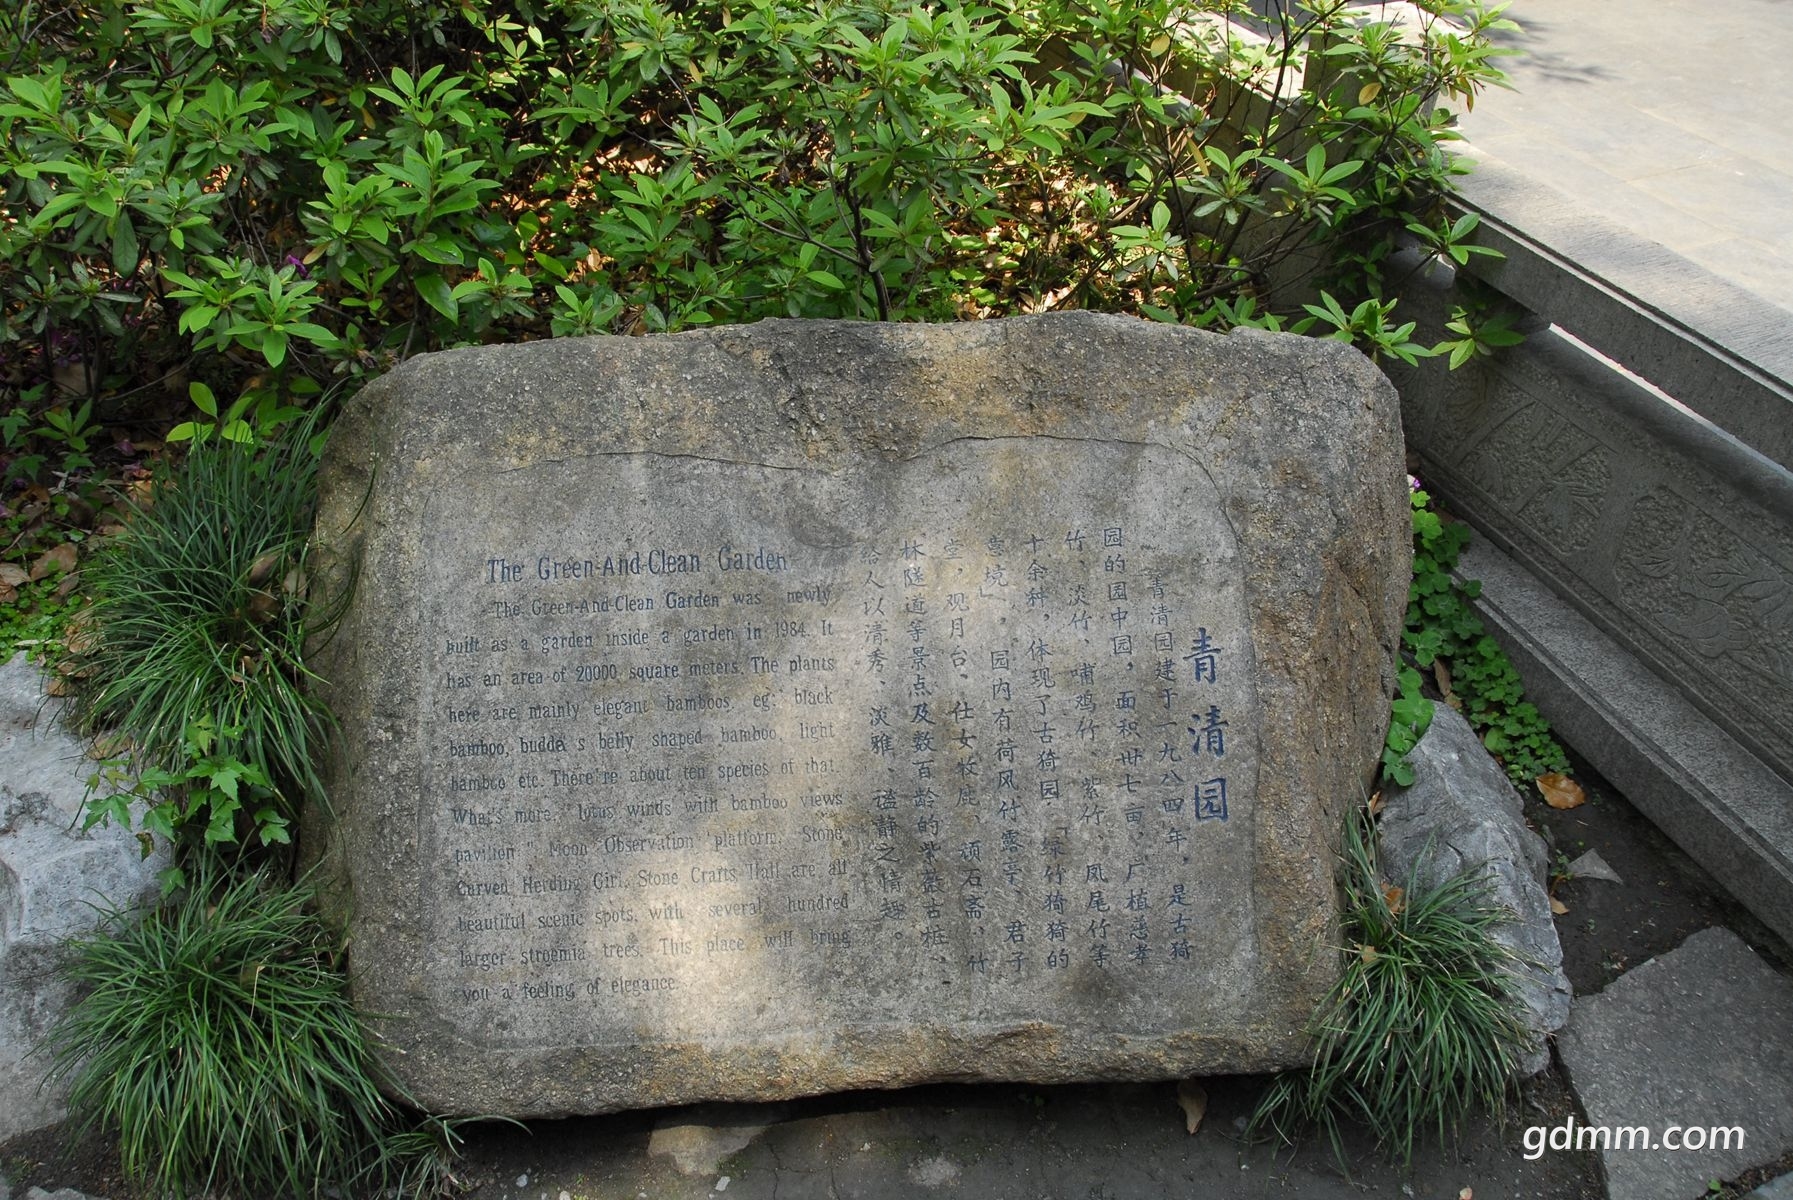 The Green-And-Clean Garden
The Green-And-Clean Garden was newly
built as a garden inside a garden in 1984. It
has an area of 20000 square meters. The plants
here are mainly elegant bamboos. eg: black
bamboo, budda's belly shaped bamboo, light
bamboo etc. There're about ten species of that.
What's more, "lotus winds with bamboo views
pavilion." Moon Observation platform, Stone
Carved Herding Girl, Stone Crafts Hall are all
beautiful scenic spots, with several hundred
larger stroemia trees. This place will bring
you a feeling of elegance.
青清园
青清园建于一九八四年，是古猗
园的园中园，面积卅七亩，广植慈孝
竹、淡竹、哺鸡竹、紫竹、凤尾竹等
十余种，体现了古猗园「绿竹猗猗的
意境」，园内有荷风竹露亭、君子
堂，观月台、仕女牧鹿、顽石斋、竹
林隧道等景点及数百龄的紫薇古桩、
给人以清秀、淡雅、谧静之情趣。
gdmm.com